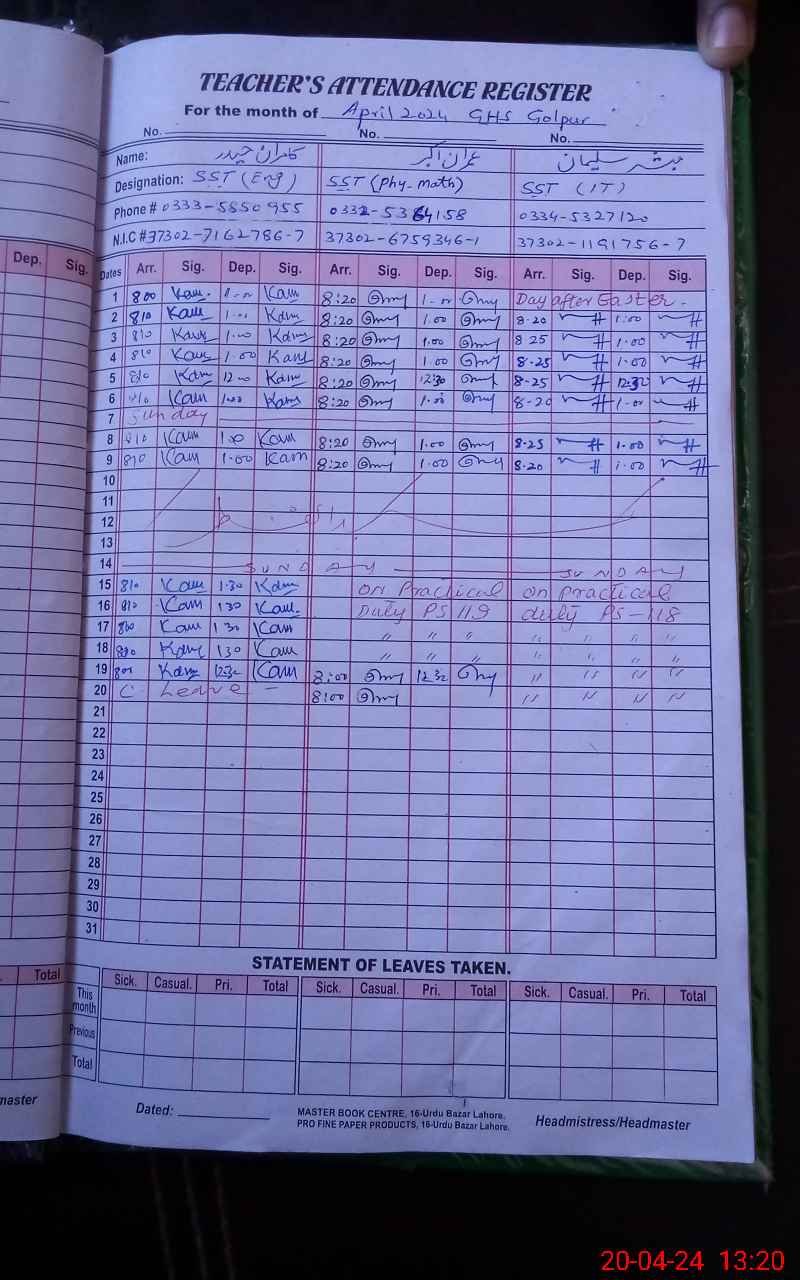 TEACHER'S ATTENDANCE REGISTER
For the month of April 2024 GHS Golpur
No. No. No.
Name: کامران حیدر عمران اکبر مبشر سلیمان
Designation: SST (Eng) SST (Phy-math) SST (IT)
Phone # 0333-5850955 0332-5364158 0334-5327120
N.I.C # 37302-7162786-7 37302-6759346-1 37302-1191756-7
Dep. Sig. Dates Arr. Sig. Dep. Sig. Arr. Sig. Dep. Sig. Arr. Sig. Dep. Sig.
1 800 Kam Kam 8:20 1-00 Day after Easter.
2 810 Kam Kam 8:20 1.00 8-20 1:00
3 810 Kam 1.00 Kam 8:20 1.00 8 25 1.00
4 810 Kam 1.00 Kam 8:20 1.00 8-25 1-00
5 810 Kam 1200 Kam 8:20 12:30 8-25 1232
6 810 Kam 1.00 Kam 8:20 1.00 8-20 1-00
7 Sunday
8 810 Kam 1.00 Kam 8:20 1.00 8.25 1.00
9 810 Kam 1.00 Kam 8:20 1.00 8.20 1.00
10
11
12
13
14 SUNDAY SUNDAY
15 810 Kam 1.30 Kam on Practical on practical
16 810 Kam 130 Kam Duty PS 119 duty PS-118
17 800 Kam 1 30 Kam " " " " " " "
18 Kam 130 Kam " " " " " " "
19 Kam 1232 Kam 8:00 12 32 " " " "
20 C. Leave - 8:00 " " " "
21
22
23
24
25
26
27
28
29
30
31
STATEMENT OF LEAVES TAKEN.
Total Sick. Casual. Pri. Total Sick. Casual. Pri. Total Sick. Casual. Pri. Total
This month
Previous
Total
master Dated: MASTER BOOK CENTRE, 16-Urdu Bazar Lahore. Headmistress/Headmaster
PRO FINE PAPER PRODUCTS, 16-Urdu Bazar Lahore.
20-04-24 13:20